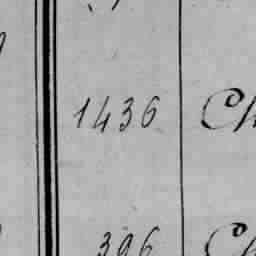 1436 Ch
396 Ch